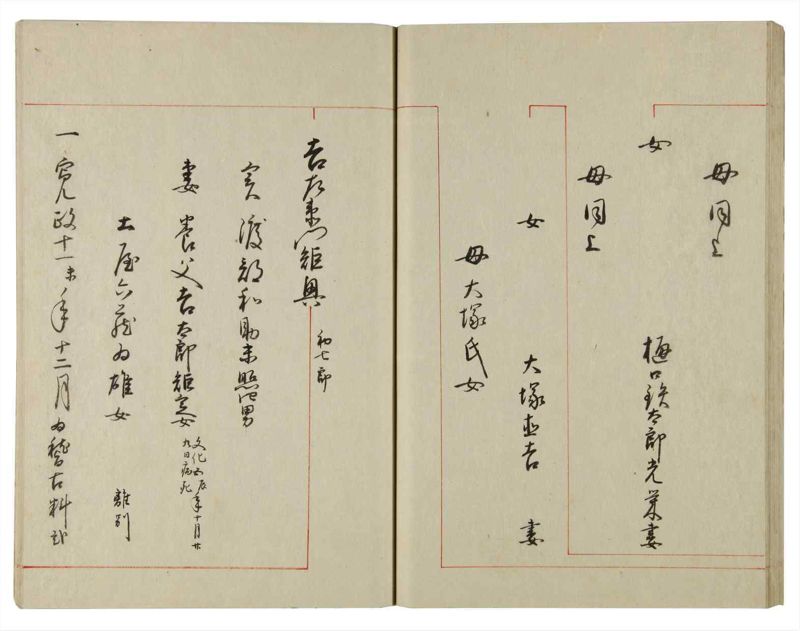 母同上
女
樋口鉄太郎光栄妻
母同上
女
大塚直吉 妻
母大塚氏女
吉左衛門矩興 初七郎
実渡部和助末照四男
妻 養父吉太郎矩定女 文化五辰年十月廿九日病死
土屋六蔵為雄女 離別
一寛政十一未年十二月為稽古料弐